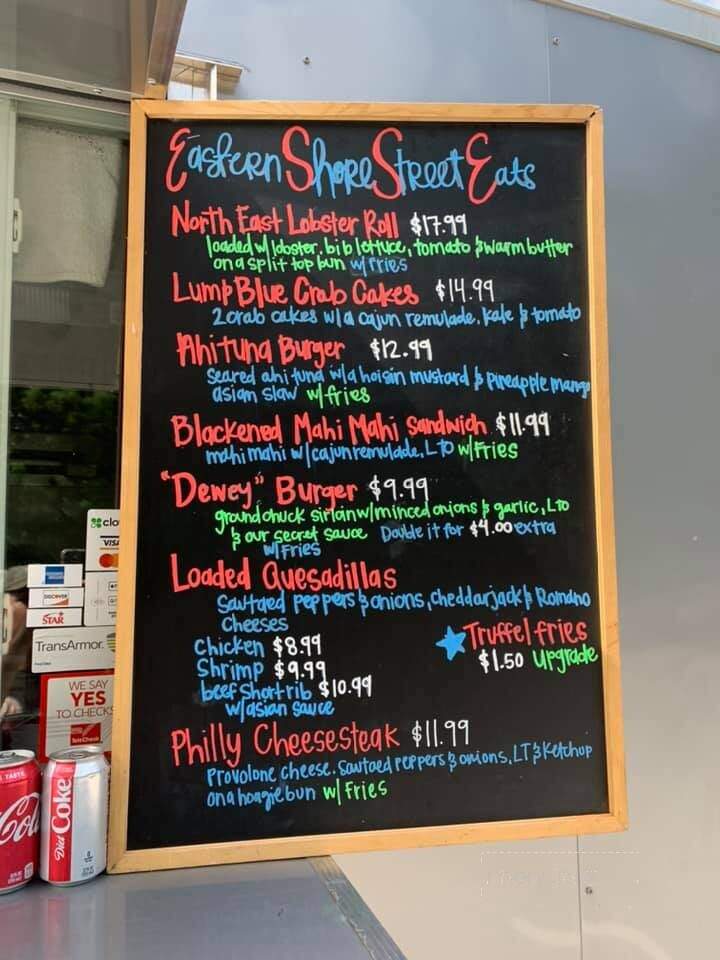 Eastern Shore Street Eats
North East Lobster Roll $17.99
loaded w/ lobster, bib lettuce, tomato & warm butter
on a split top bun w/ fries
Lump Blue Crab Cakes $14.99
2 crab cakes w/ a cajun remulade, kale & tomato
Ahi tuna Burger $12.99
Seared ahi tuna w/a hoisin mustard & pineapple mango
asian slaw w/fries
Blackened Mahi Mahi Sandwich $11.99
mahi mahi w/ cajun remulade, LTO w/Fries
"Dewey" Burger $9.99
ground chuck sirlan w/ minced onions & garlic, LTO
& our secret sauce Double it for $4.00 extra
w/ Fries
Loaded Quesadillas
Sautaed peppers & onions, cheddar jack & Romano
Cheeses
Chicken $8.99
Shrimp $9.99
beef Short rib $10.99
w/asian sauce
Truffel fries
$1.50 upgrade
Philly Cheesesteak $11.99
Provolone cheese. Sautaed peppers & onions, LT & Ketchup
on a hoagie bun w/ Fries
clo
VISA
DISCOVER
STAR
TransArmor.
WE SAY
YES
TO CHECKS
TeleCheck
TASTE
Coke
Diet